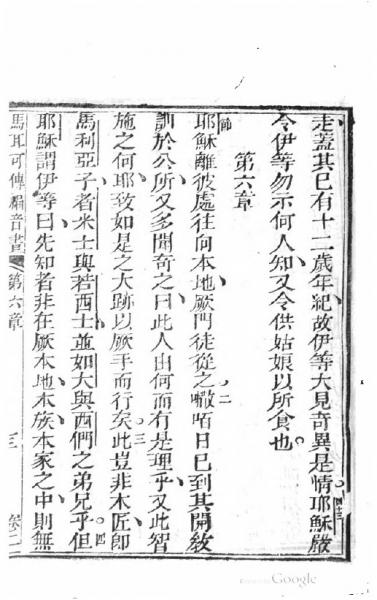 走蓋其已有十二歲年紀故伊等大見奇異是情耶穌嚴
四十三
令伊等勿示何人知又令供姑娘以所食也
第六章
節
耶穌離彼處往向本地厥門徒從之㘔咟日已到其開教
二
訓於公所又多聞奇之曰此人由何而有是理乎又此智
施之何耶致如是之大跡以厥手而行矣此豈非木匠即
三
馬利亞子者米士與若西士並如大與西們之弟兄乎但
四
耶穌謂伊等曰先知者非在厥本地本族本家之中則無
馬耳可傳福音書 第六章 三 卷二
Google